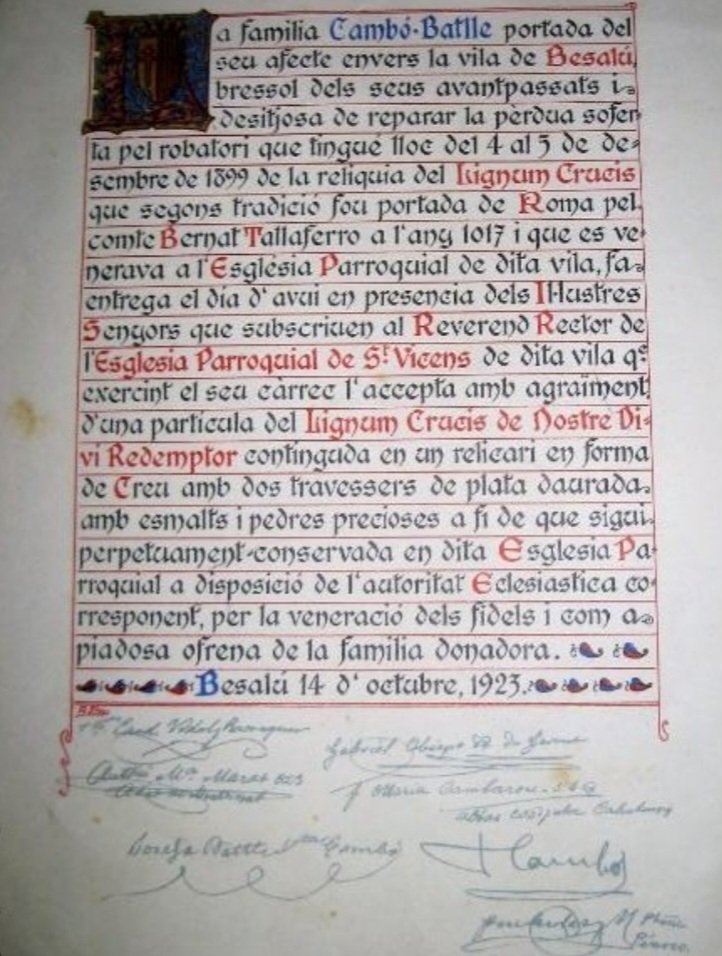 La familia Cambó-Batlle portada del
seu afecte envers la vila de Besalú,
bressol dels seus avantpassats i
desitjosa de reparar la pèrdua sofer
ta pel robatori que tingué lloc del 4 al 5 de de-
sembre de 1899 de la reliquia del Lignum Crucis
que segons tradició fou portada de Roma pel
comte Bernat Tallaferro a l'any 1017 i que es ve-
nerava a l'Esglesia Parroquial de dita vila, fa
entrega el dia d'avui en presencia dels Il·lustres
Senyors que subscriuen al Reverend Rector de
l'Esglesia Parroquial de St. Vicens de dita vila qe.
exercint el seu càrrec l'accepta amb agraïment,
d'una particula del Lignum Crucis de Nostre Di-
vi Redemptor continguda en un relicari en forma
de Creu amb dos travessers de plata daurada
amb esmalts i pedres precioses a fi de que sigui
perpetuament-conservada en dita Esglesia Pa-
rroquial a disposició de l'autoritat Eclesiastica co-
rresponent, per la veneració dels fidels i com a
piadosa ofrena de la familia donadora.
Besalú 14 d'octubre, 1923.
Card. Vidal y Barraquer
Gabriel Obispo
Antº Mª Marcet
Josefa Batlle Cambó
F Cambó